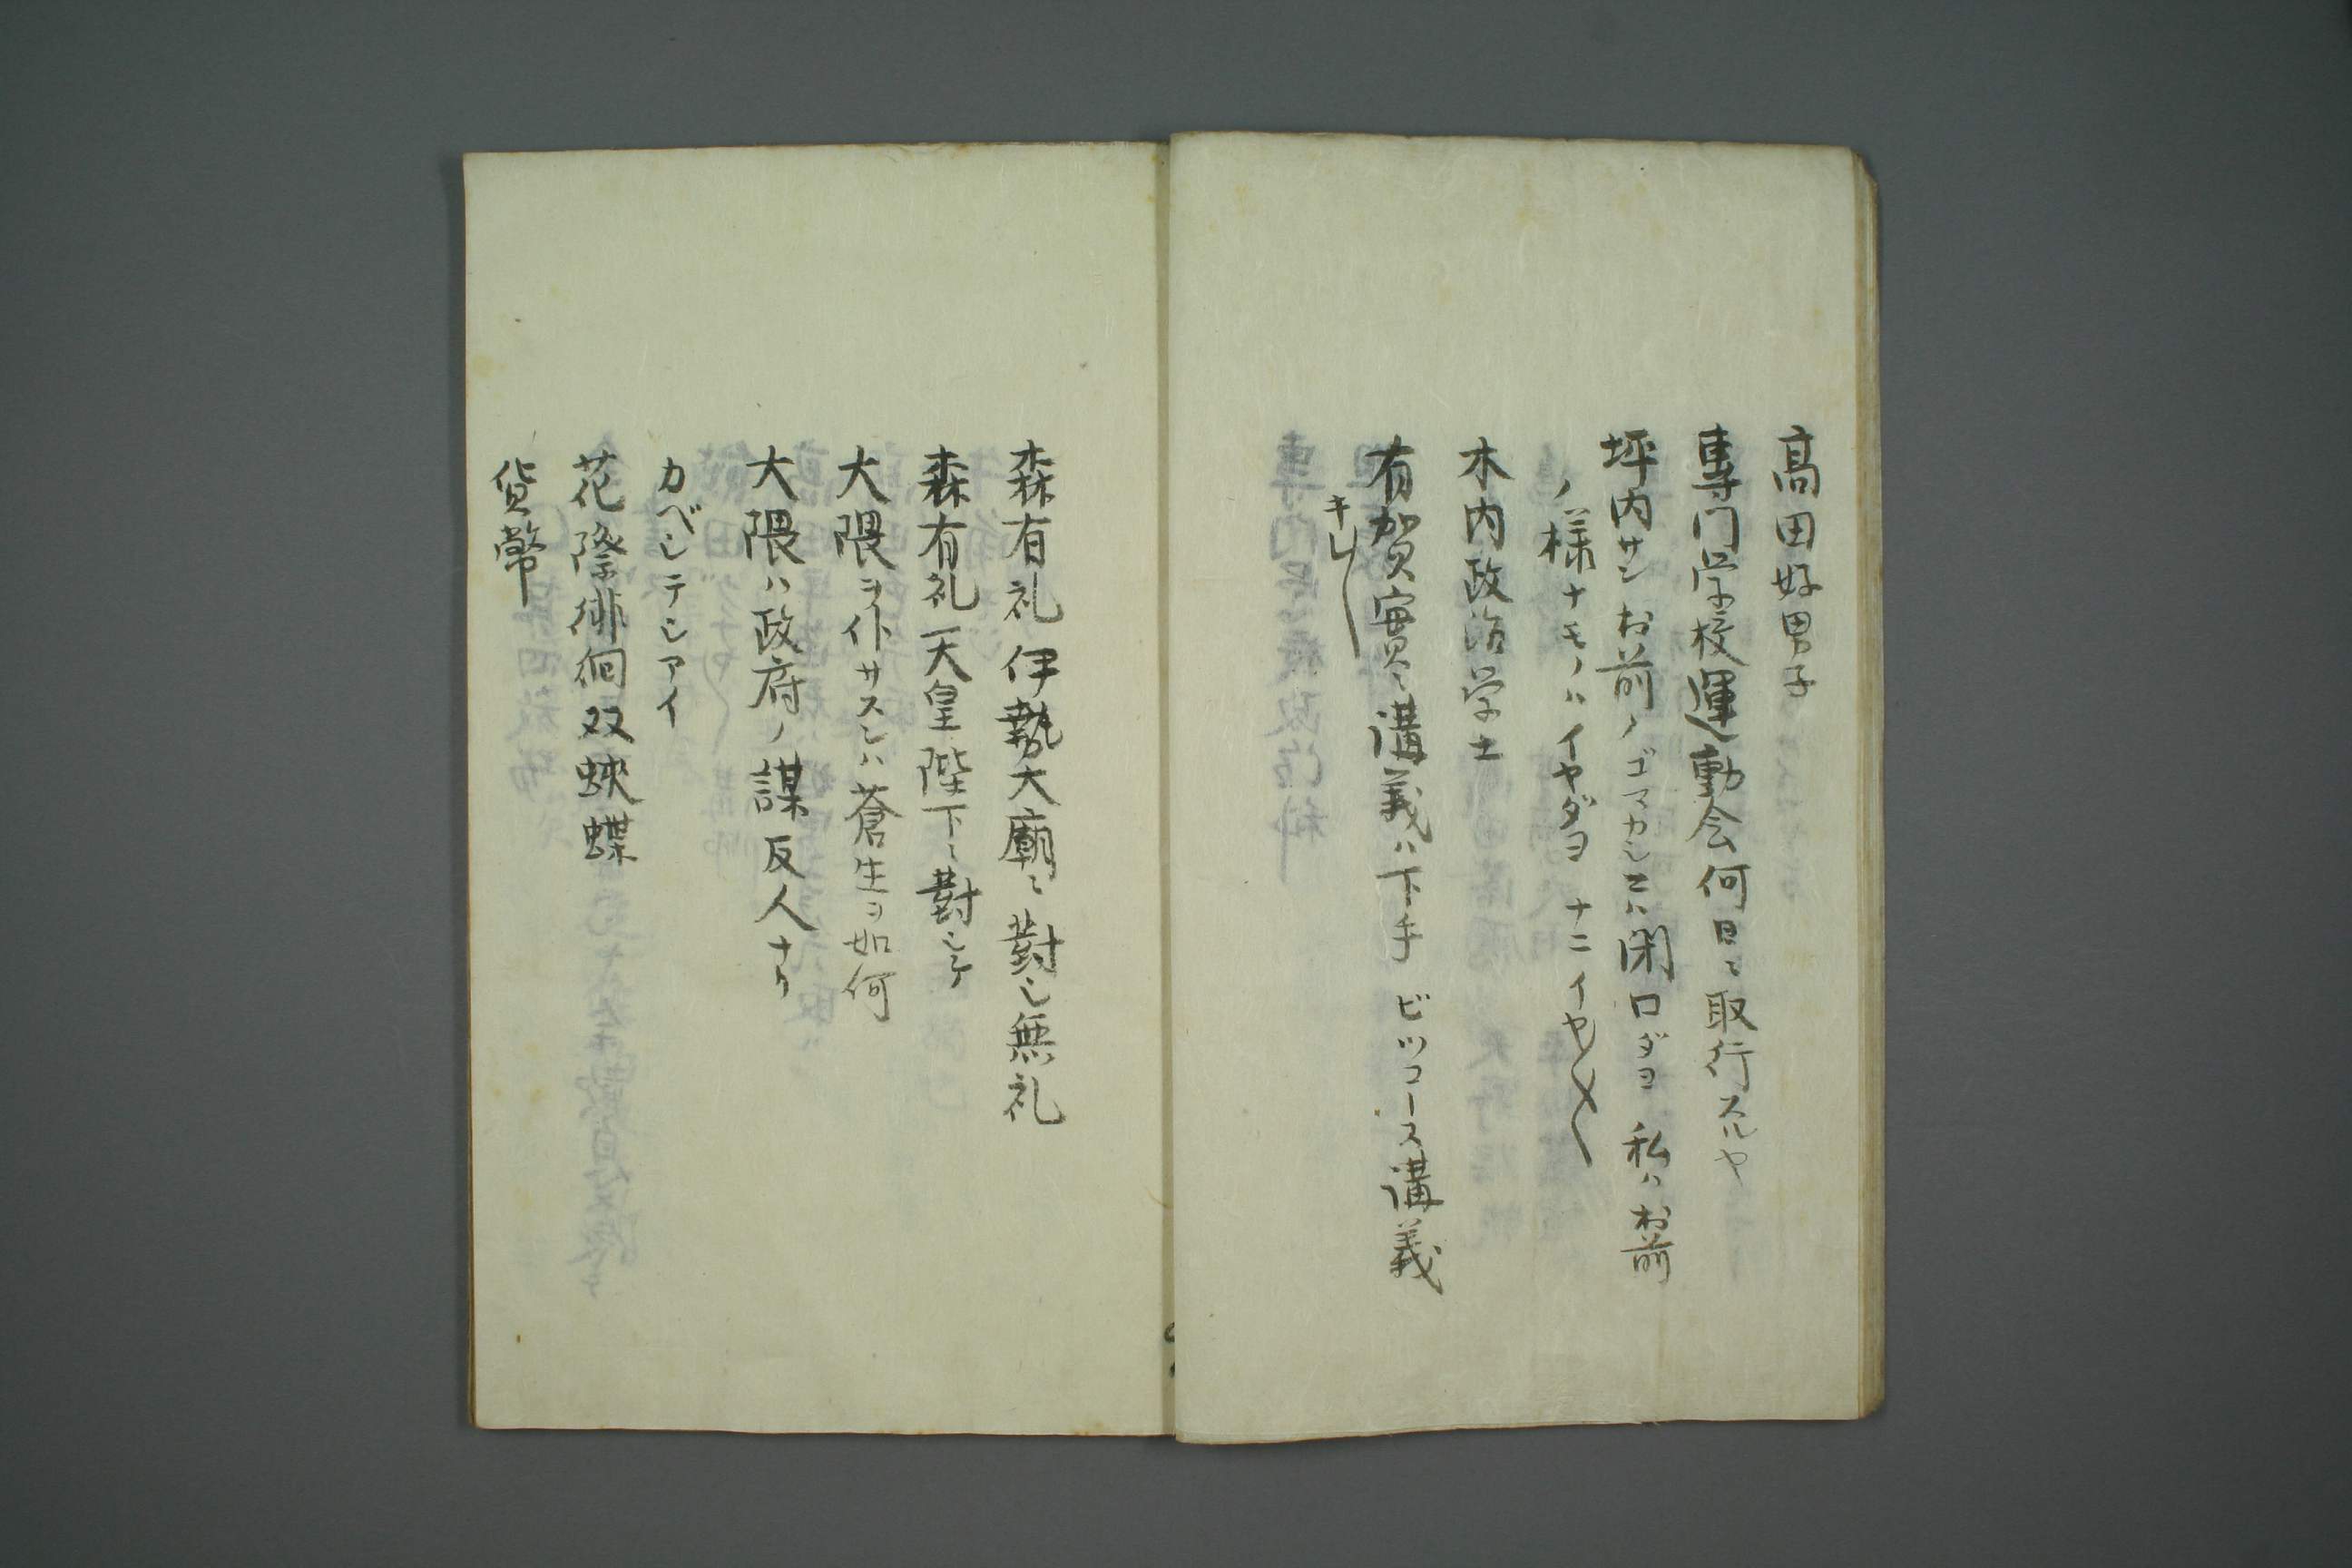 髙田好男子
專門学校運動会何日ニ取行スルヤ
坪内サンお前ノゴマカシニハ閉口ダヨ 私ハお前
ノ様ナモノハイヤダヨ ナニイヤ〱〱
木内政治学士
有賀實ニ講義ハ下手 ビツコース講義
キレ〱
森有礼伊勢大廟ニ對シ無礼
森有礼天皇陛下ニ對シテ
大隈ヲ仆サスンハ蒼生ヲ如何
大隈ハ政府ノ謀反人ナリ
カベシテシアイ
花際徘徊双蛺蝶
貨幣